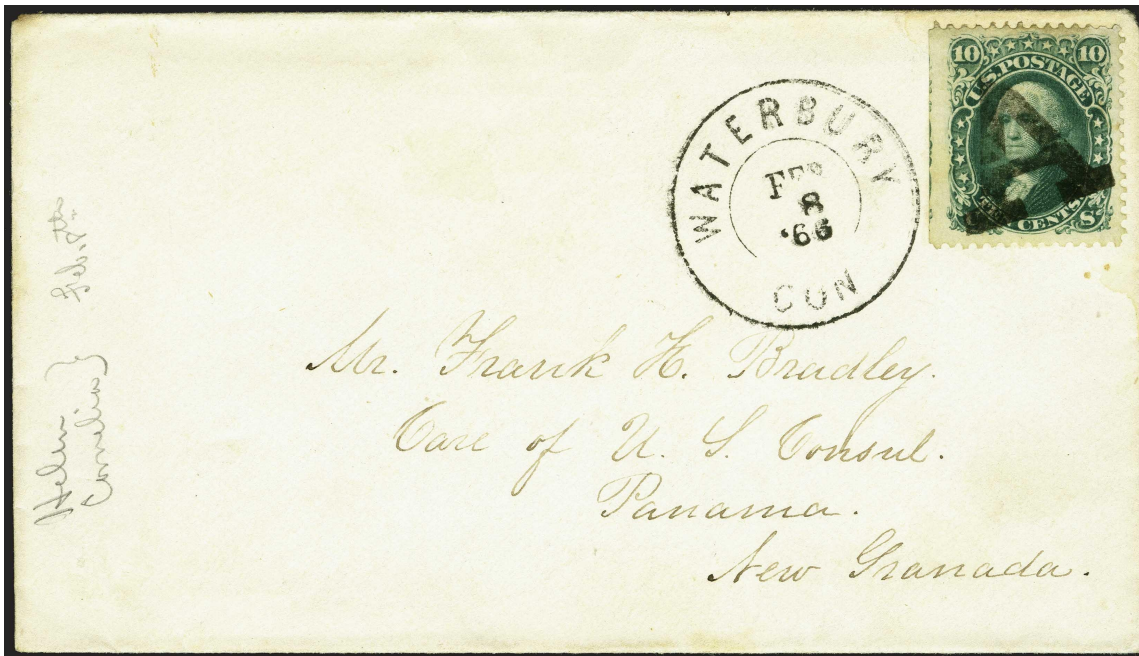 10 10
U.S. POSTAGE
TEN CENTS
WATERBURY
FEB
8
'66
CON
Mr. Frank H. Bradley.
Care of U. S. Consul.
Panama.
New Granada.
Helen
Cornelia } Feb. 7th